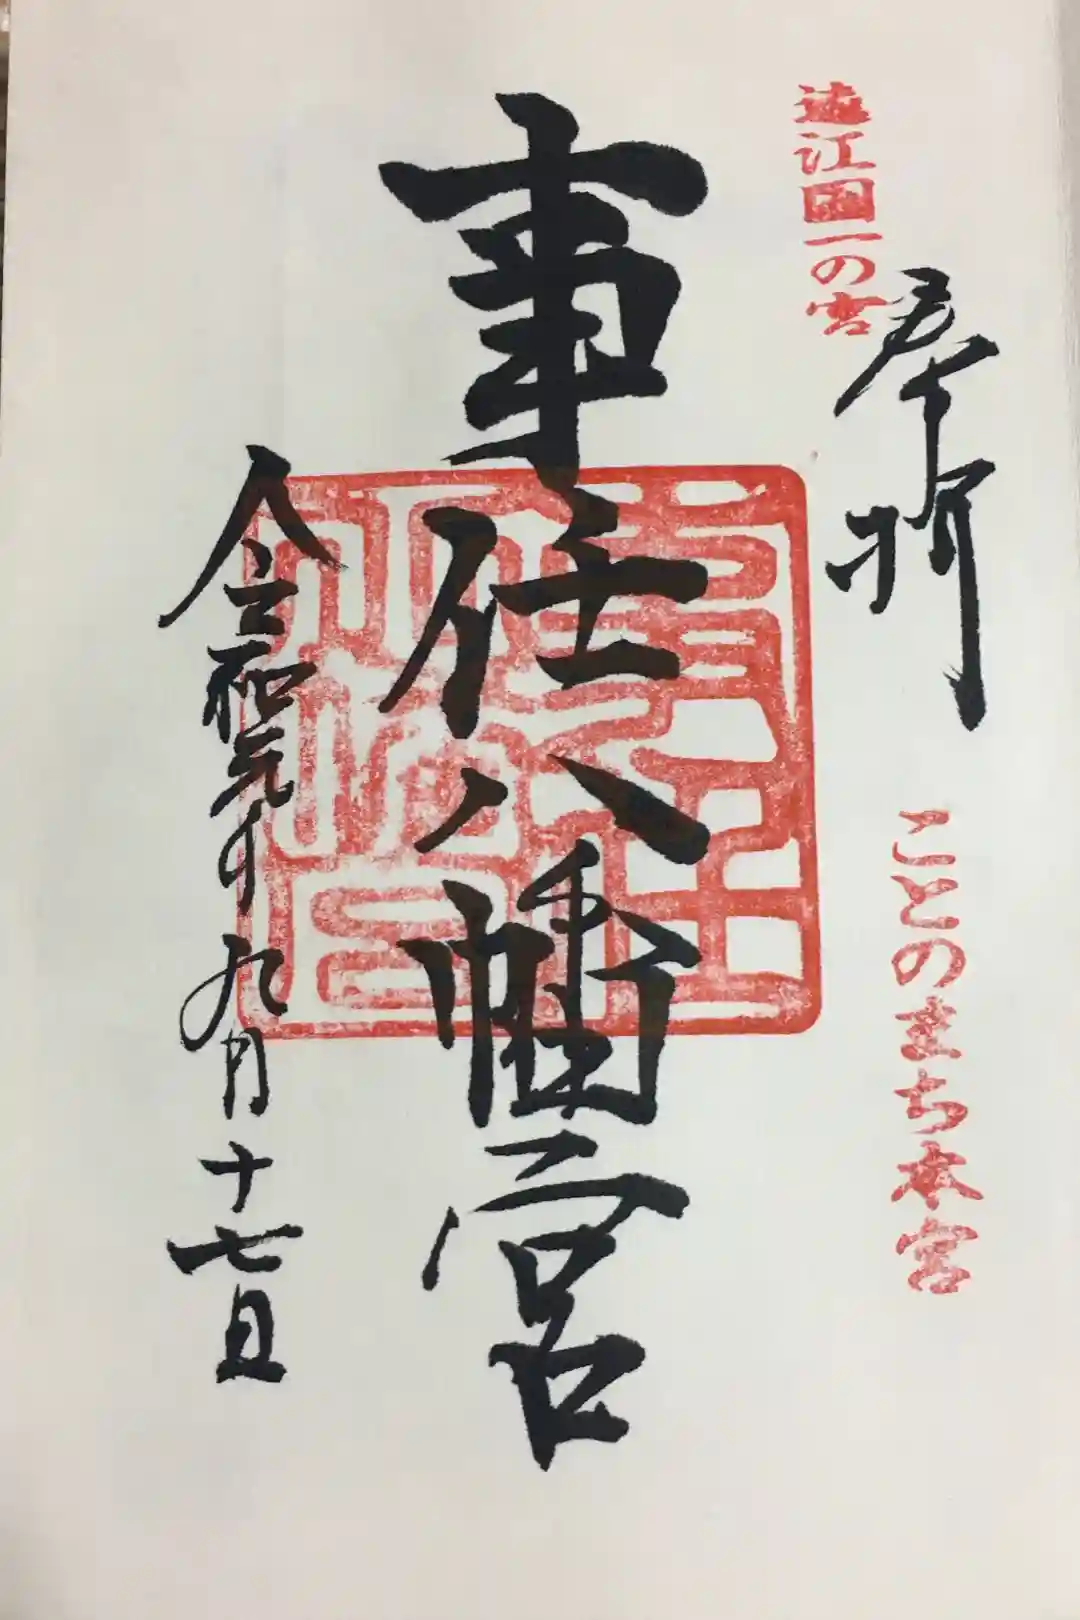 遠江国一の宮
奉拝
ことのまち本宮
事任八幡宮
令和元年九月十七日